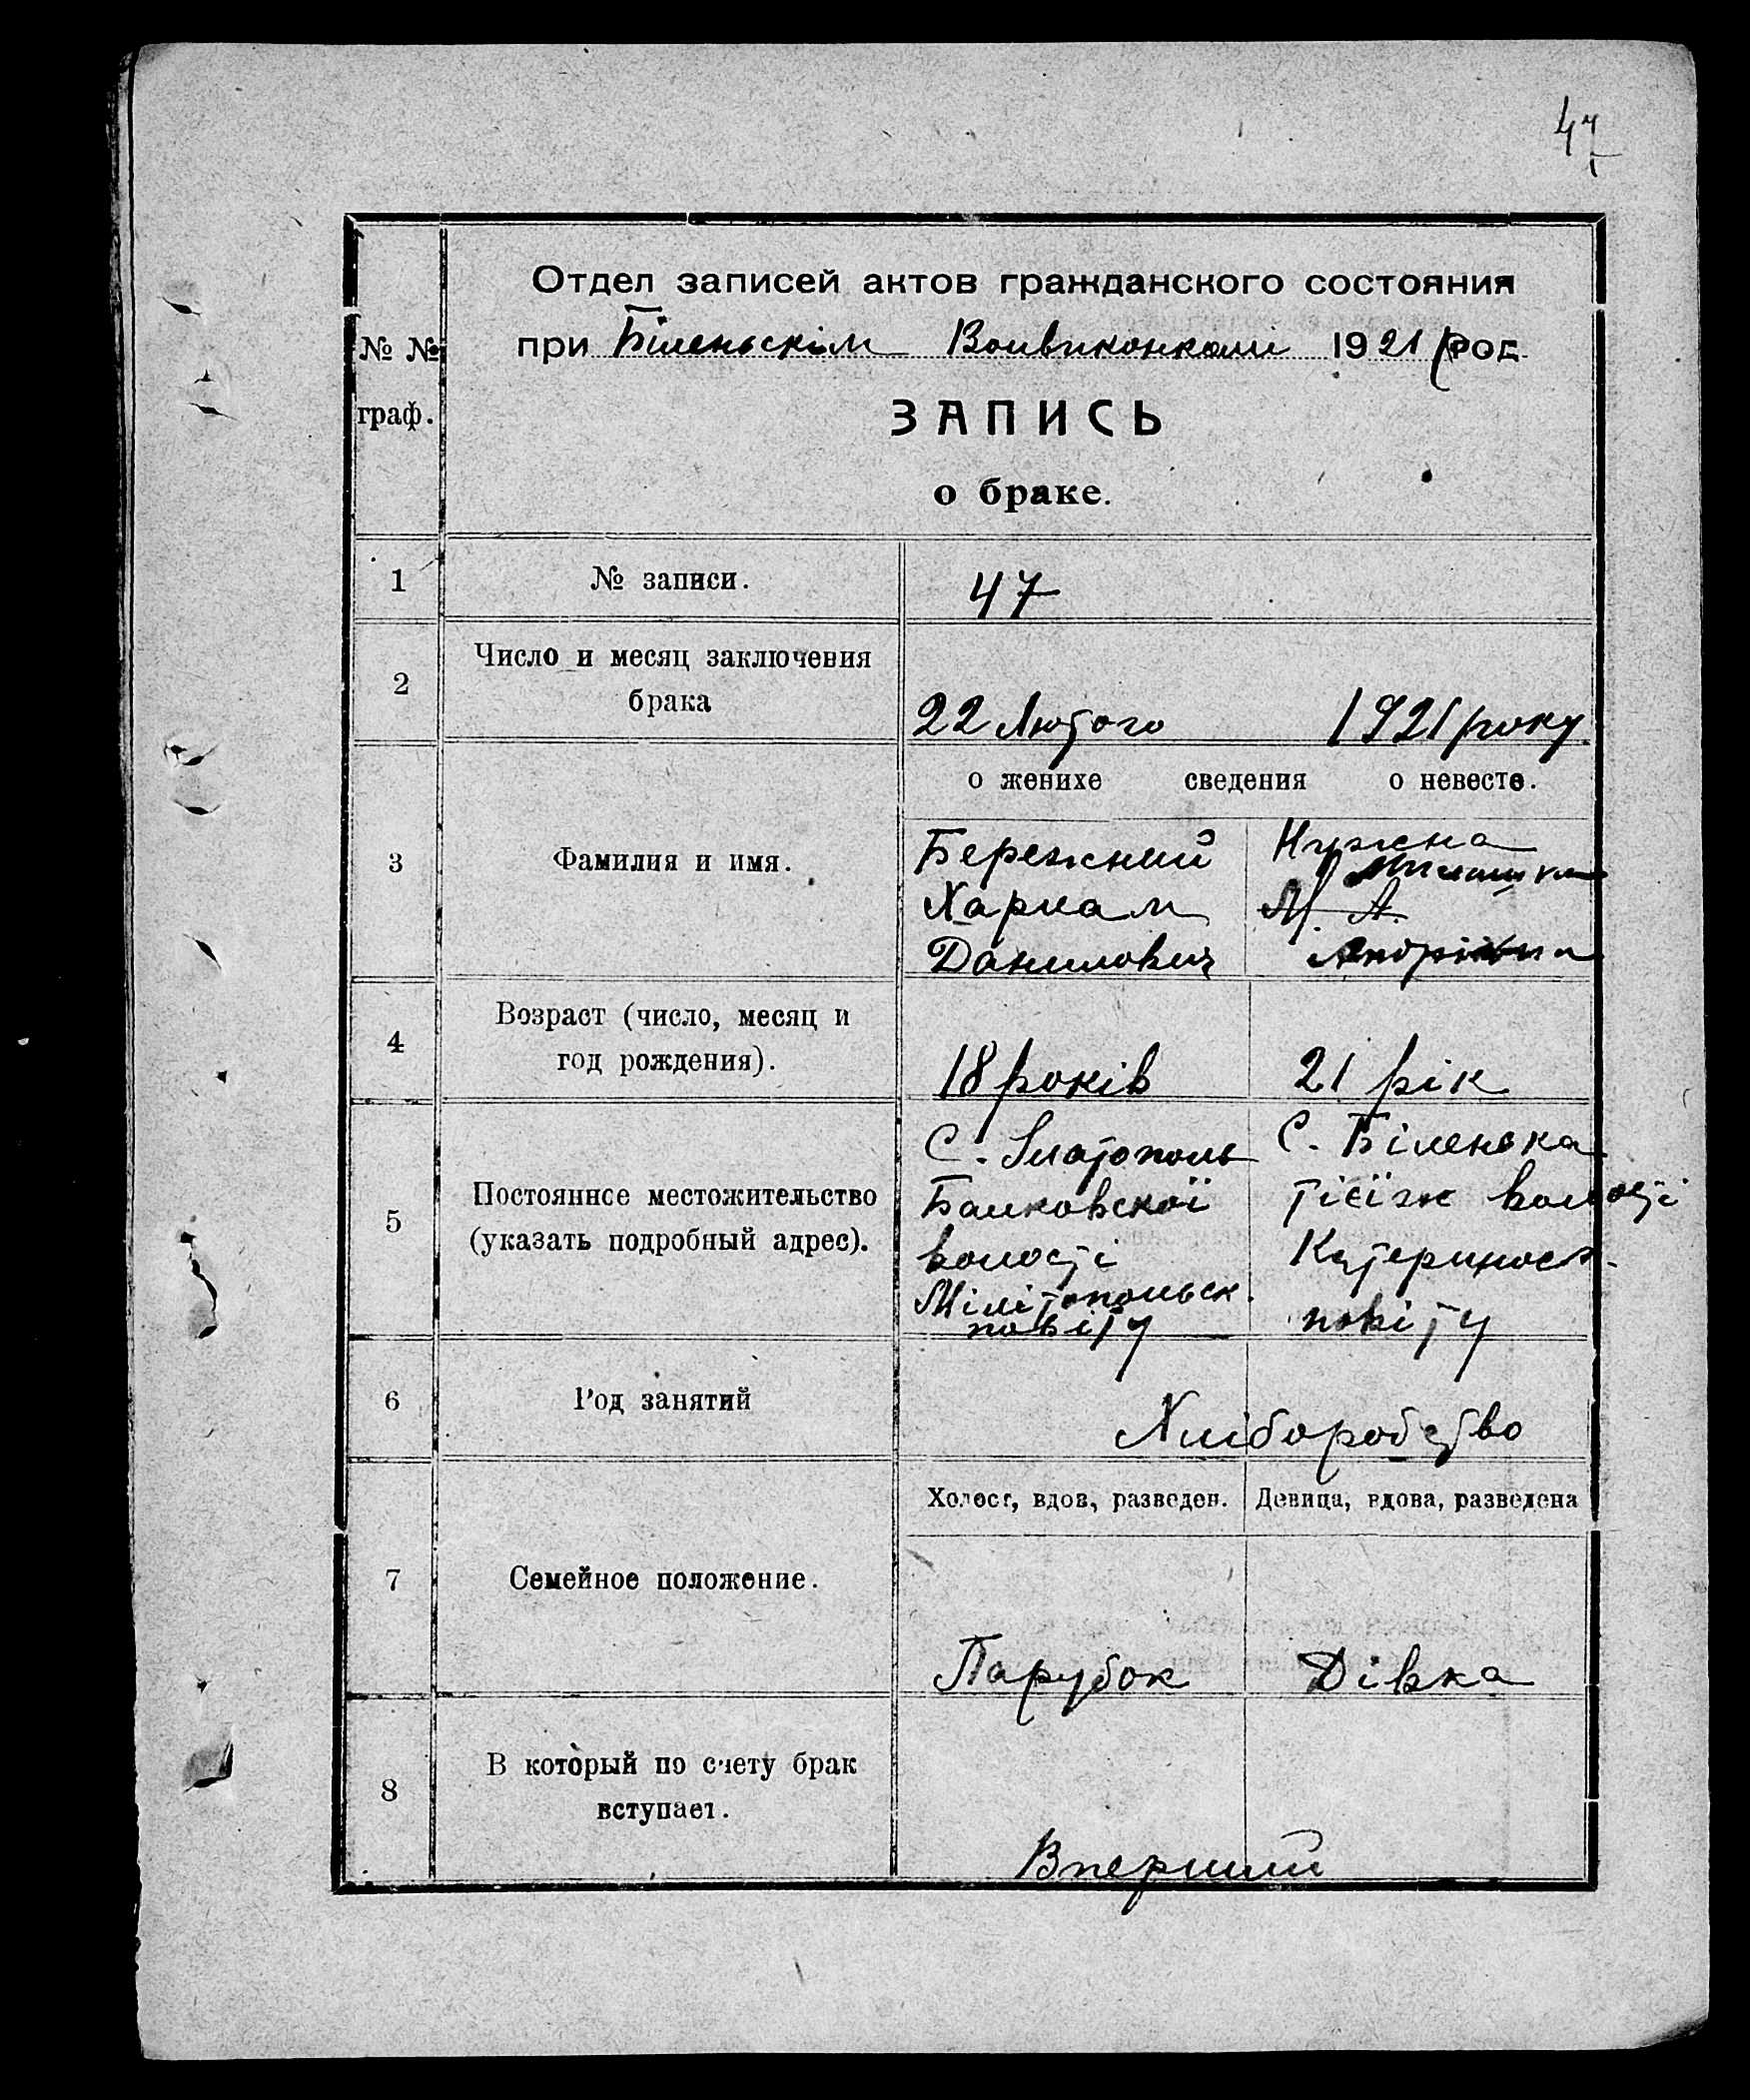 47
Отдел записей актов гражданского состояния
при Біленьскім Волвиконкомі 1921 р род.
№ №
граф.
ЗАПИСЬ
о браке.
1 № записи. 47
2 Число и месяц заключения
брака
22 Лютого 1921 року.
о женихе сведения о невесте.
3 Фамилия и имя.
Бережний
Харлам
Данилович
Нужна
М. А.
4 Возраст (число, месяц и
год рождения).
18 років 21 рік
5 Постоянное местожительство
(указать подробный адрес).
С. Златополь
Балковскої
волості
Мілітопольск.
повіту
С. Біленька
тієїж волості
Катериносл.
повіту
6 Род занятий
Хліборобство
Холост, вдов, разведен. Девица, вдова, разведена
7 Семейное положение.
Парубок Дівка
8 В который по счету брак
вступает.
Вперший